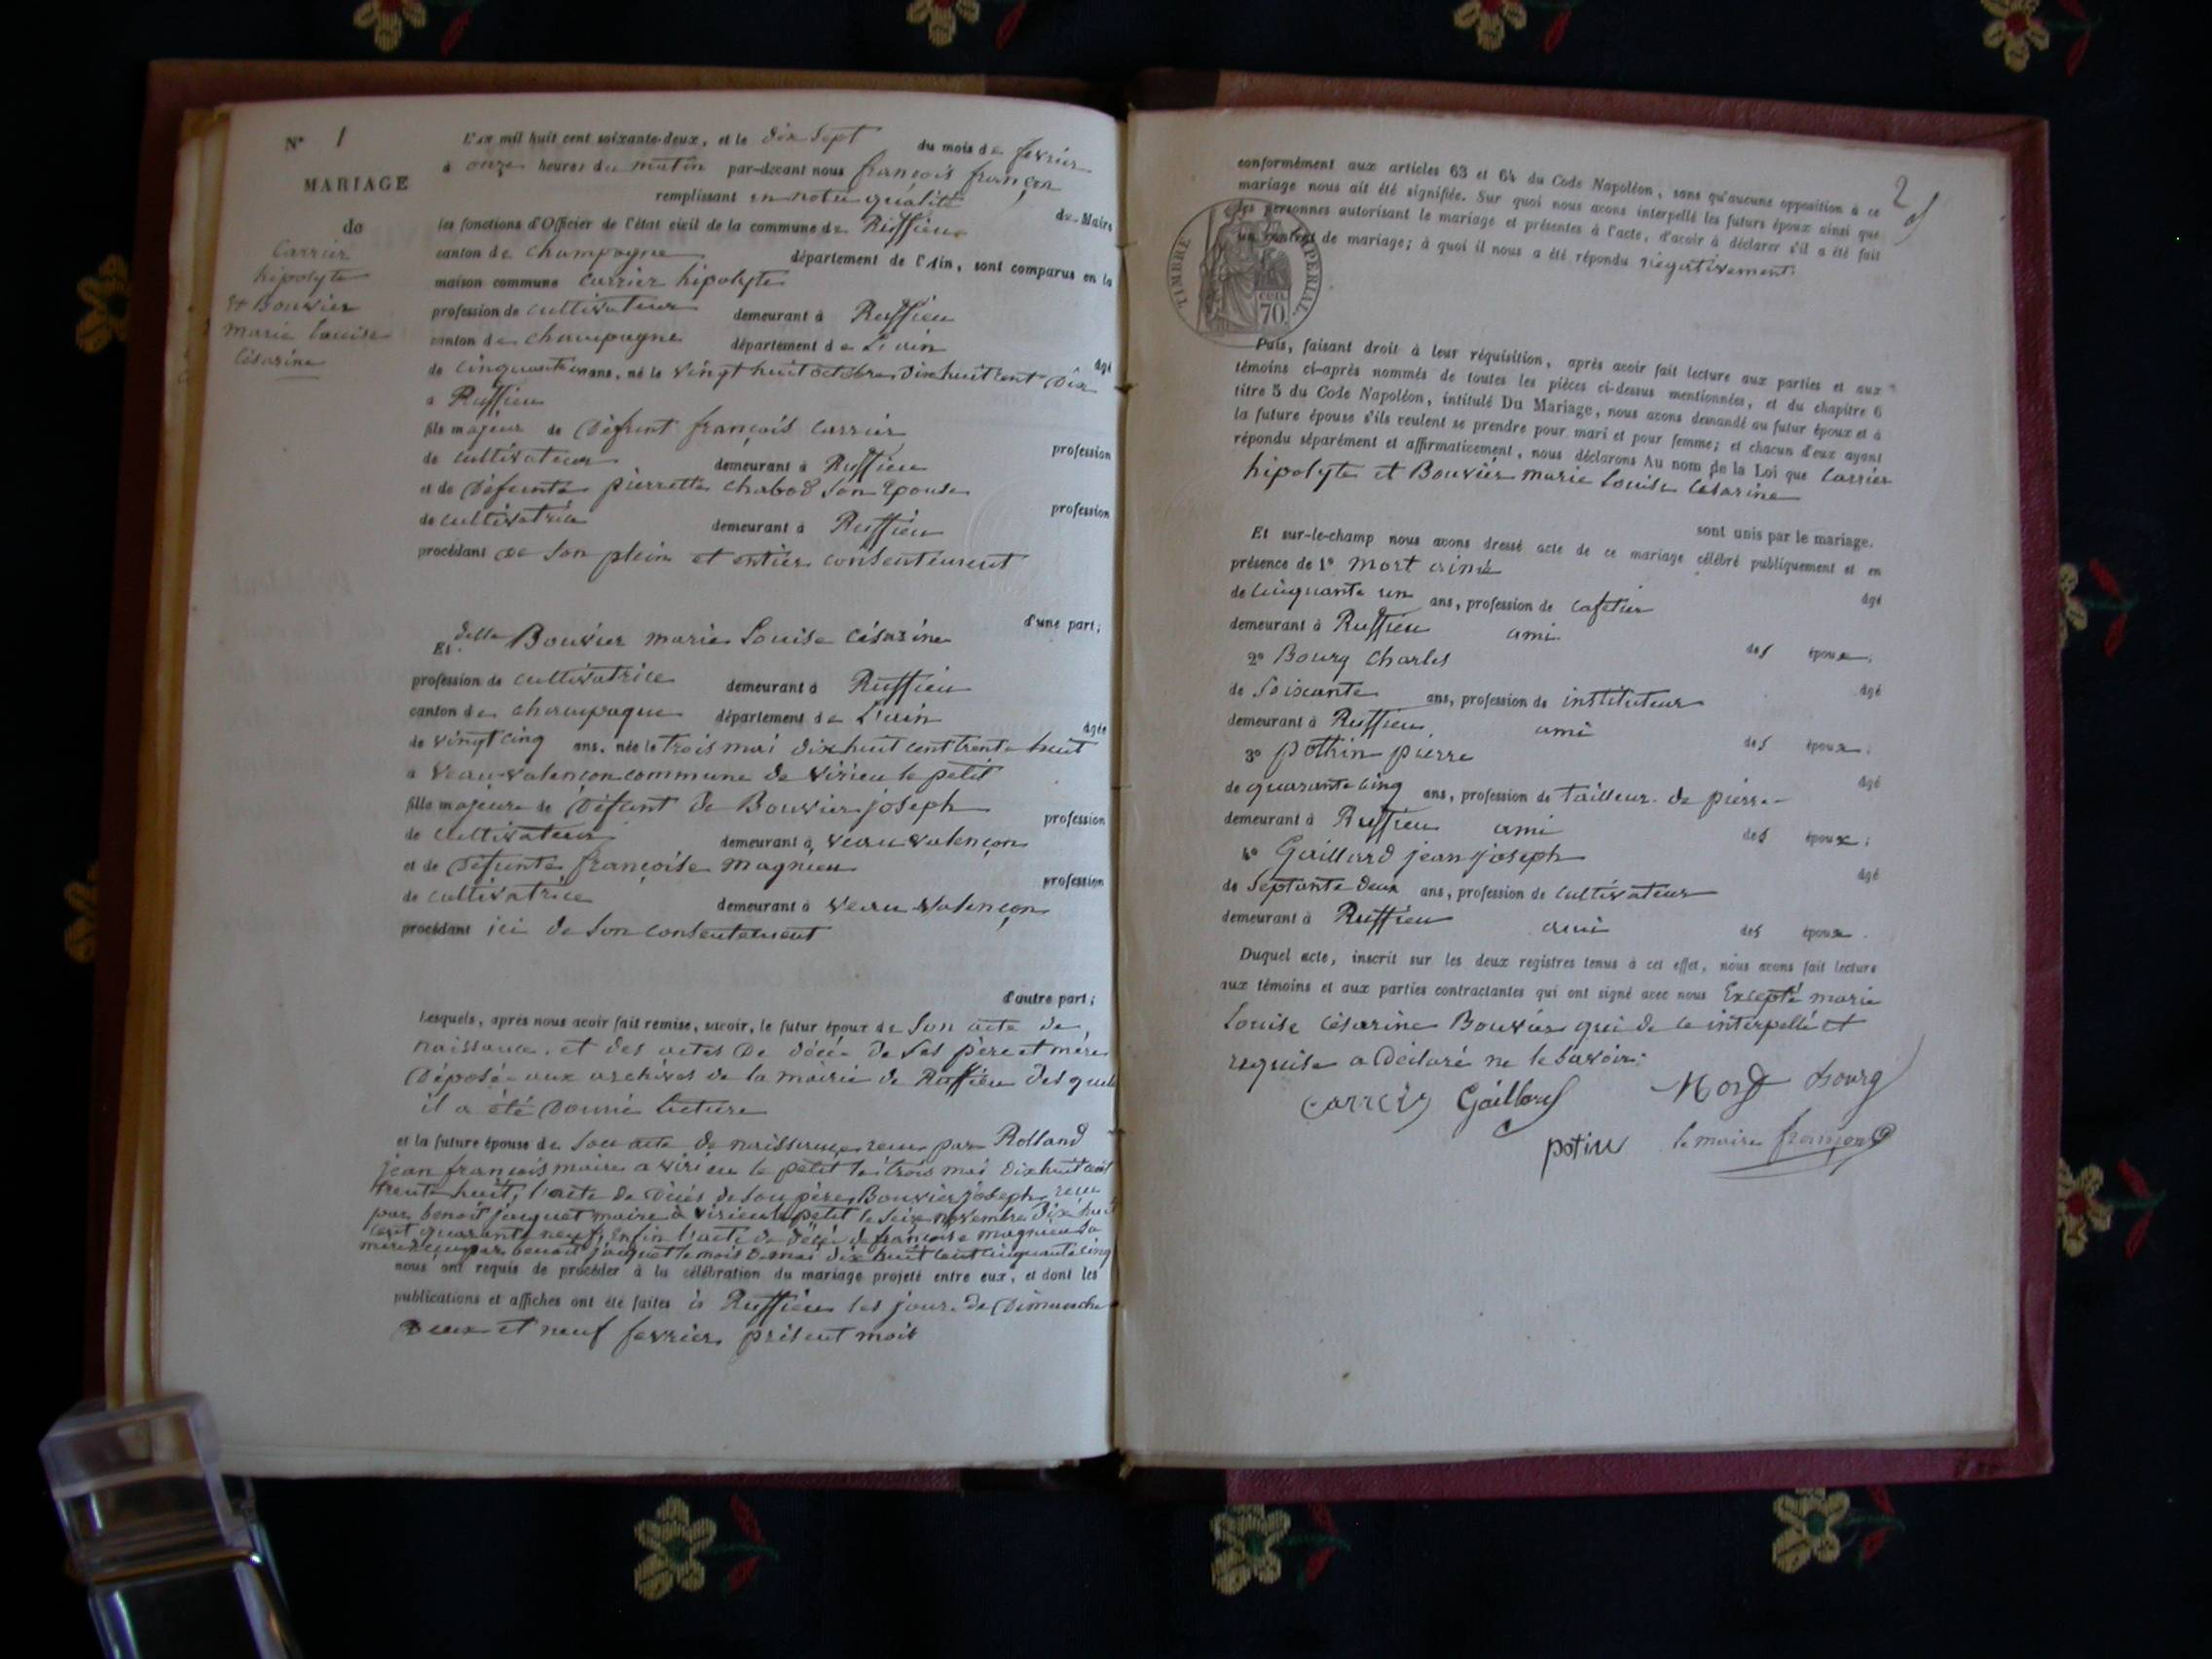 N° 1
MARIAGE
de
Carrier
hipolyte
et Bouvier
marie Louise
Césarine
L'an mil huit cent soixante-deux, et le dix sept du mois de fevrier
à onze heures du matin par-devant nous françois françon
remplissant en notre qualité de Maire
les fonctions d'Officier de l'état civil de la commune de Ruffieu
canton de Champagne département de l'Ain, sont comparus en la
maison commune Carrier hipolyte
profession de Cultivateur demeurant à Ruffieu
canton de Champagne département de L'ain
âgé
de cinquante un ans, né le vingt huit octobre dix huit cent dix
à Ruffieu
fils majeur de Défunt françois Carrier
profession
de cultivateur demeurant à Ruffieu
et de Défunte pierrette Chabod son Epouse
profession
de cultivatrice demeurant à Ruffieu
procédant de son plein et entier consentement
d'une part;
Et delle Bouvier marie Louise Césarine
profession de cultivatrice demeurant à Ruffieu
canton de champagne département de L'ain
âgée
de vingt cinq ans, née le trois mai dix huit cent trente huit
à veau-valençon commune de virieu le petit
fille majeure de Défunt de Bouvier joseph
profession
de Cultivateur demeurant à veau valençon
et de Défunte françoise magnieu
profession
de cultivatrice demeurant à veau valençon
procédant ici de son consentement
d'autre part;
Lesquels, après nous avoir fait remise, savoir, le futur époux de Son acte de
naissance, et des actes De décé de Ses père et mère
Déposé aux archives de la mairie de Ruffieu des quels
il a été Donné lecture
et la future épouse de Son acte de naissance reçu par Rolland
jean françois maire a virieu le petit le trois mai dix huit cent
trente huit, l'acte de Décés de son père Bouvier joseph reçu
par benoit jacquet maire à virieu le petit le seize novembre dix huit
cent quarante neuf, enfin l'acte de décé de françoise magnieu sa
mère reçu par benoit jacquet le mois de mai dix huit cent cinquante cinq
nous ont requis de procéder à la célébration du mariage projeté entre eux, et dont les
publications et affiches ont été faites à Ruffieu les jour de Dimanche
Deux et neuf fevrier présent mois
2
conformément aux articles 63 et 64 du Code Napoléon, sans qu'aucune opposition à ce
mariage nous ait été signifiée. Sur quoi nous avons interpellé les futurs époux ainsi que
les personnes autorisant le mariage et présentes à l'acte, d'avoir à déclarer s'il a été fait
un contrat de mariage; à quoi il nous a été répondu négativement.
TIMBRE IMPERIAL
CEN.
70.
Puis, faisant droit à leur réquisition, après avoir fait lecture aux parties et aux
témoins ci-après nommés de toutes les pièces ci-dessus mentionnées, et du chapitre 6
titre 5 du Code Napoléon, intitulé Du Mariage, nous avons demandé au futur époux et à
la future épouse s'ils veulent se prendre pour mari et pour femme; et chacun d'eux ayant
répondu séparément et affirmativement, nous déclarons Au nom de la Loi que Carrier
hipolyte et Bouvier marie Louise Césarine
sont unis par le mariage.
Et sur-le-champ nous avons dressé acte de ce mariage célébré publiquement et en
présence de 1° Mort aimé
âgé
de Cinquante un ans, profession de Cafetier
demeurant à Ruffieu ami
des époux;
2° Bourg Charles
âgé
de Soixante ans, profession de instituteur
demeurant à Ruffieu ami
des époux;
3° pothin pierre
âgé
de quarante cinq ans, profession de Tailleur de pierre
demeurant à Ruffieu ami des époux;
4° Gaillard jean joseph
âgé
de Septante deux ans, profession de cultivateur
demeurant à Ruffieu ami des époux.
Duquel acte, inscrit sur les deux registres tenus à cet effet, nous avons fait lecture
aux témoins et aux parties contractantes qui ont signé avec nous Excepté marie
Louise Césarine Bouvier qui de ce interpellé et
requise a Déclaré ne le savoir.
Carrier Gaillard Mort Bourg
potin le maire françon